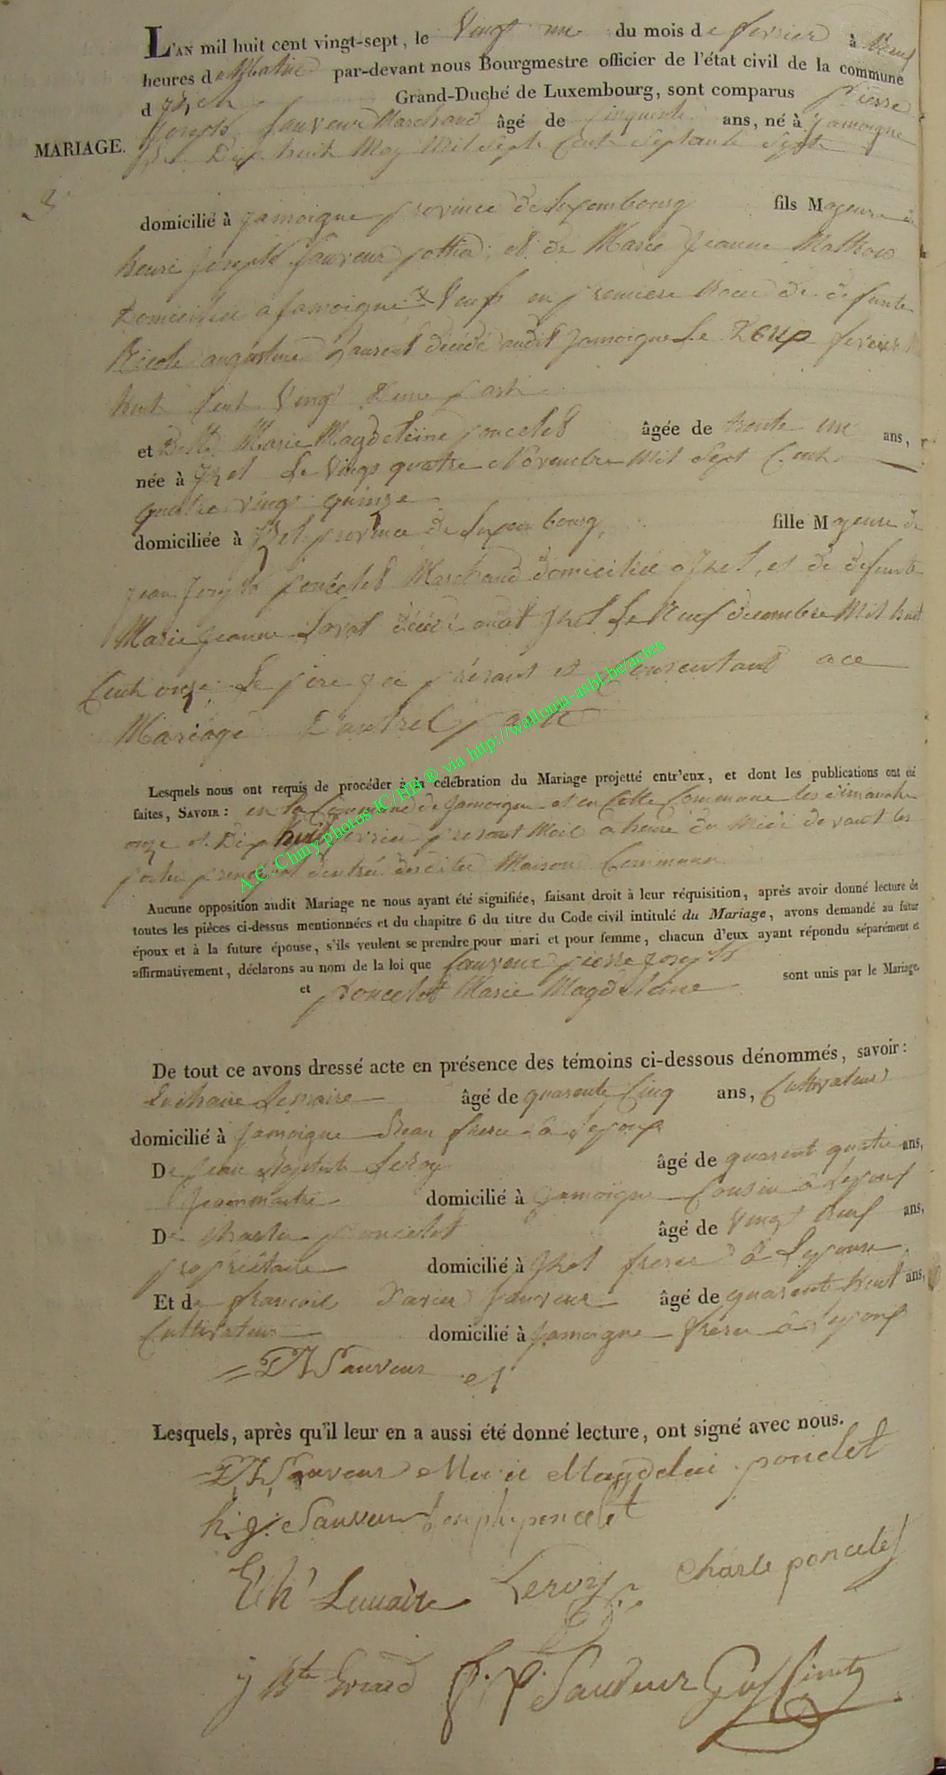 L'AN mil huit cent vingt-sept, le Vingt une du mois de fevrier à Neuf
heures du Matin par-devant nous Bourgmestre officier de l'état civil de la commune
d Grand-Duché de Luxembourg, sont comparus Pierre
Joseph Sauveur Marchand âgé de Cinquante ans, né à Jamoigne
MARIAGE. Dix huit May Mil Sept Cent Septante Sept
3
domicilié à Jamoigne province de Luxembourg fils Majeur de
henri Joseph Sauveur et de Marie Jeanne
Domiciliée a Jamoigne Veuf en premiere Noce de defunte
Nicole augustine Laurent décédé audit Jamoigne Le fevrier
huit Cent Vingt D'une part
et Delle Marie Magdeleine poncelet âgée de trente un ans,
née à Izel Le Vingt quatre Novembre Mil Sept Cent
quatre vingt quinze
domiciliée à Izel province de Luxembourg, fille Majeure de
Jean Joseph poncelet Marchand domicilié a Izel, et de defunte
Marie Jeanne décédé audit Izel Le Neuf décembre Mil huit
Cent onze Le père ici présent et Consentant a ce
Mariage D'autre part
A.C. Chiny photos IC/HB ® via http://wallonia-asbl.be/actes
Lesquels nous ont requis de procéder à la célébration du Mariage projetté entr'eux, et dont les publications ont été
faites, SAVOIR: en la Commune de Jamoigne et en Cette Commune les dimanche
onze et Dix huit fevrier present Mois a heure du Midi devant les
porte principal d'entrée desdites Maison Commune
Aucune opposition audit Mariage ne nous ayant été signifiée, faisant droit à leur réquisition, après avoir donné lecture de
toutes les pièces ci-dessus mentionnées et du chapitre 6 du titre du Code civil intitulé du Mariage, avons demandé au futur
époux et à la future épouse, s'ils veulent se prendre pour mari et pour femme, chacun d'eux ayant répondu séparément et
affirmativement, déclarons au nom de la loi que Sauveur pierre Joseph
et poncelet Marie Magdelaine sont unis par le Mariage.
De tout ce avons dressé acte en présence des témoins ci-dessous dénommés, savoir:
Lemaire âgé de quarante Cinq ans, Cultivateur
domicilié à Jamoigne Beau frere à Lepoux
De Jean Baptiste Leroy âgé de quarent quatre ans,
domicilié à Jamoigne Cousin à Lepoux
De Charle poncelet âgé de Vingt Neuf ans,
propriétaire domicilié à Izel frere à Lepouse
Et de francois Xavier Sauveur âgé de quarente huit ans,
Cultivateur domicilié à Jamoigne frere à Lepoux
Sauveur
Lesquels, après qu'il leur en a aussi été donné lecture, ont signé avec nous.
Sauveur Marie Magdelai poncelet
h. j. Sauveur Joseph poncelet
Lemaire Leroy Charle poncelet
j Bte Evrard f. x. Sauveur